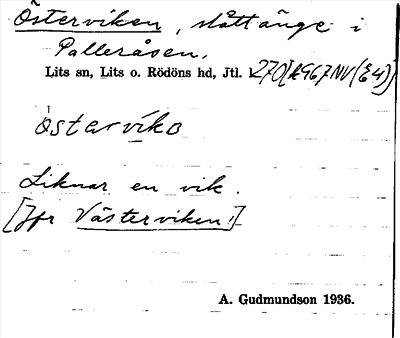 Österviken, slåttänge i
Palleråsen.
Lits sn, Lits o. Rödöns hd, Jtl. k 270 [k967NV(E4)]
östərvíkɑ
Liknar en vik.
[Jfr Västerviken!]
A. Gudmundson 1936.